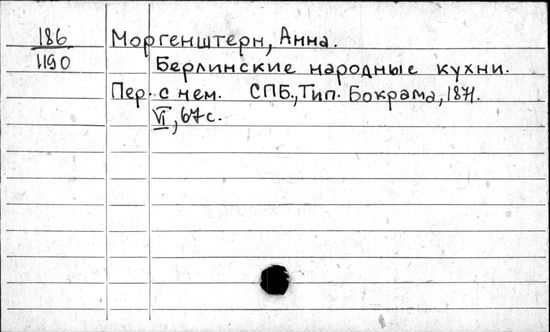 186 Моргенштерн, Анна.
1190 Берлинские народные кухни.
Пер. с нем. СПБ., Тип. Бокрама, 1871.
VI, 67 с.